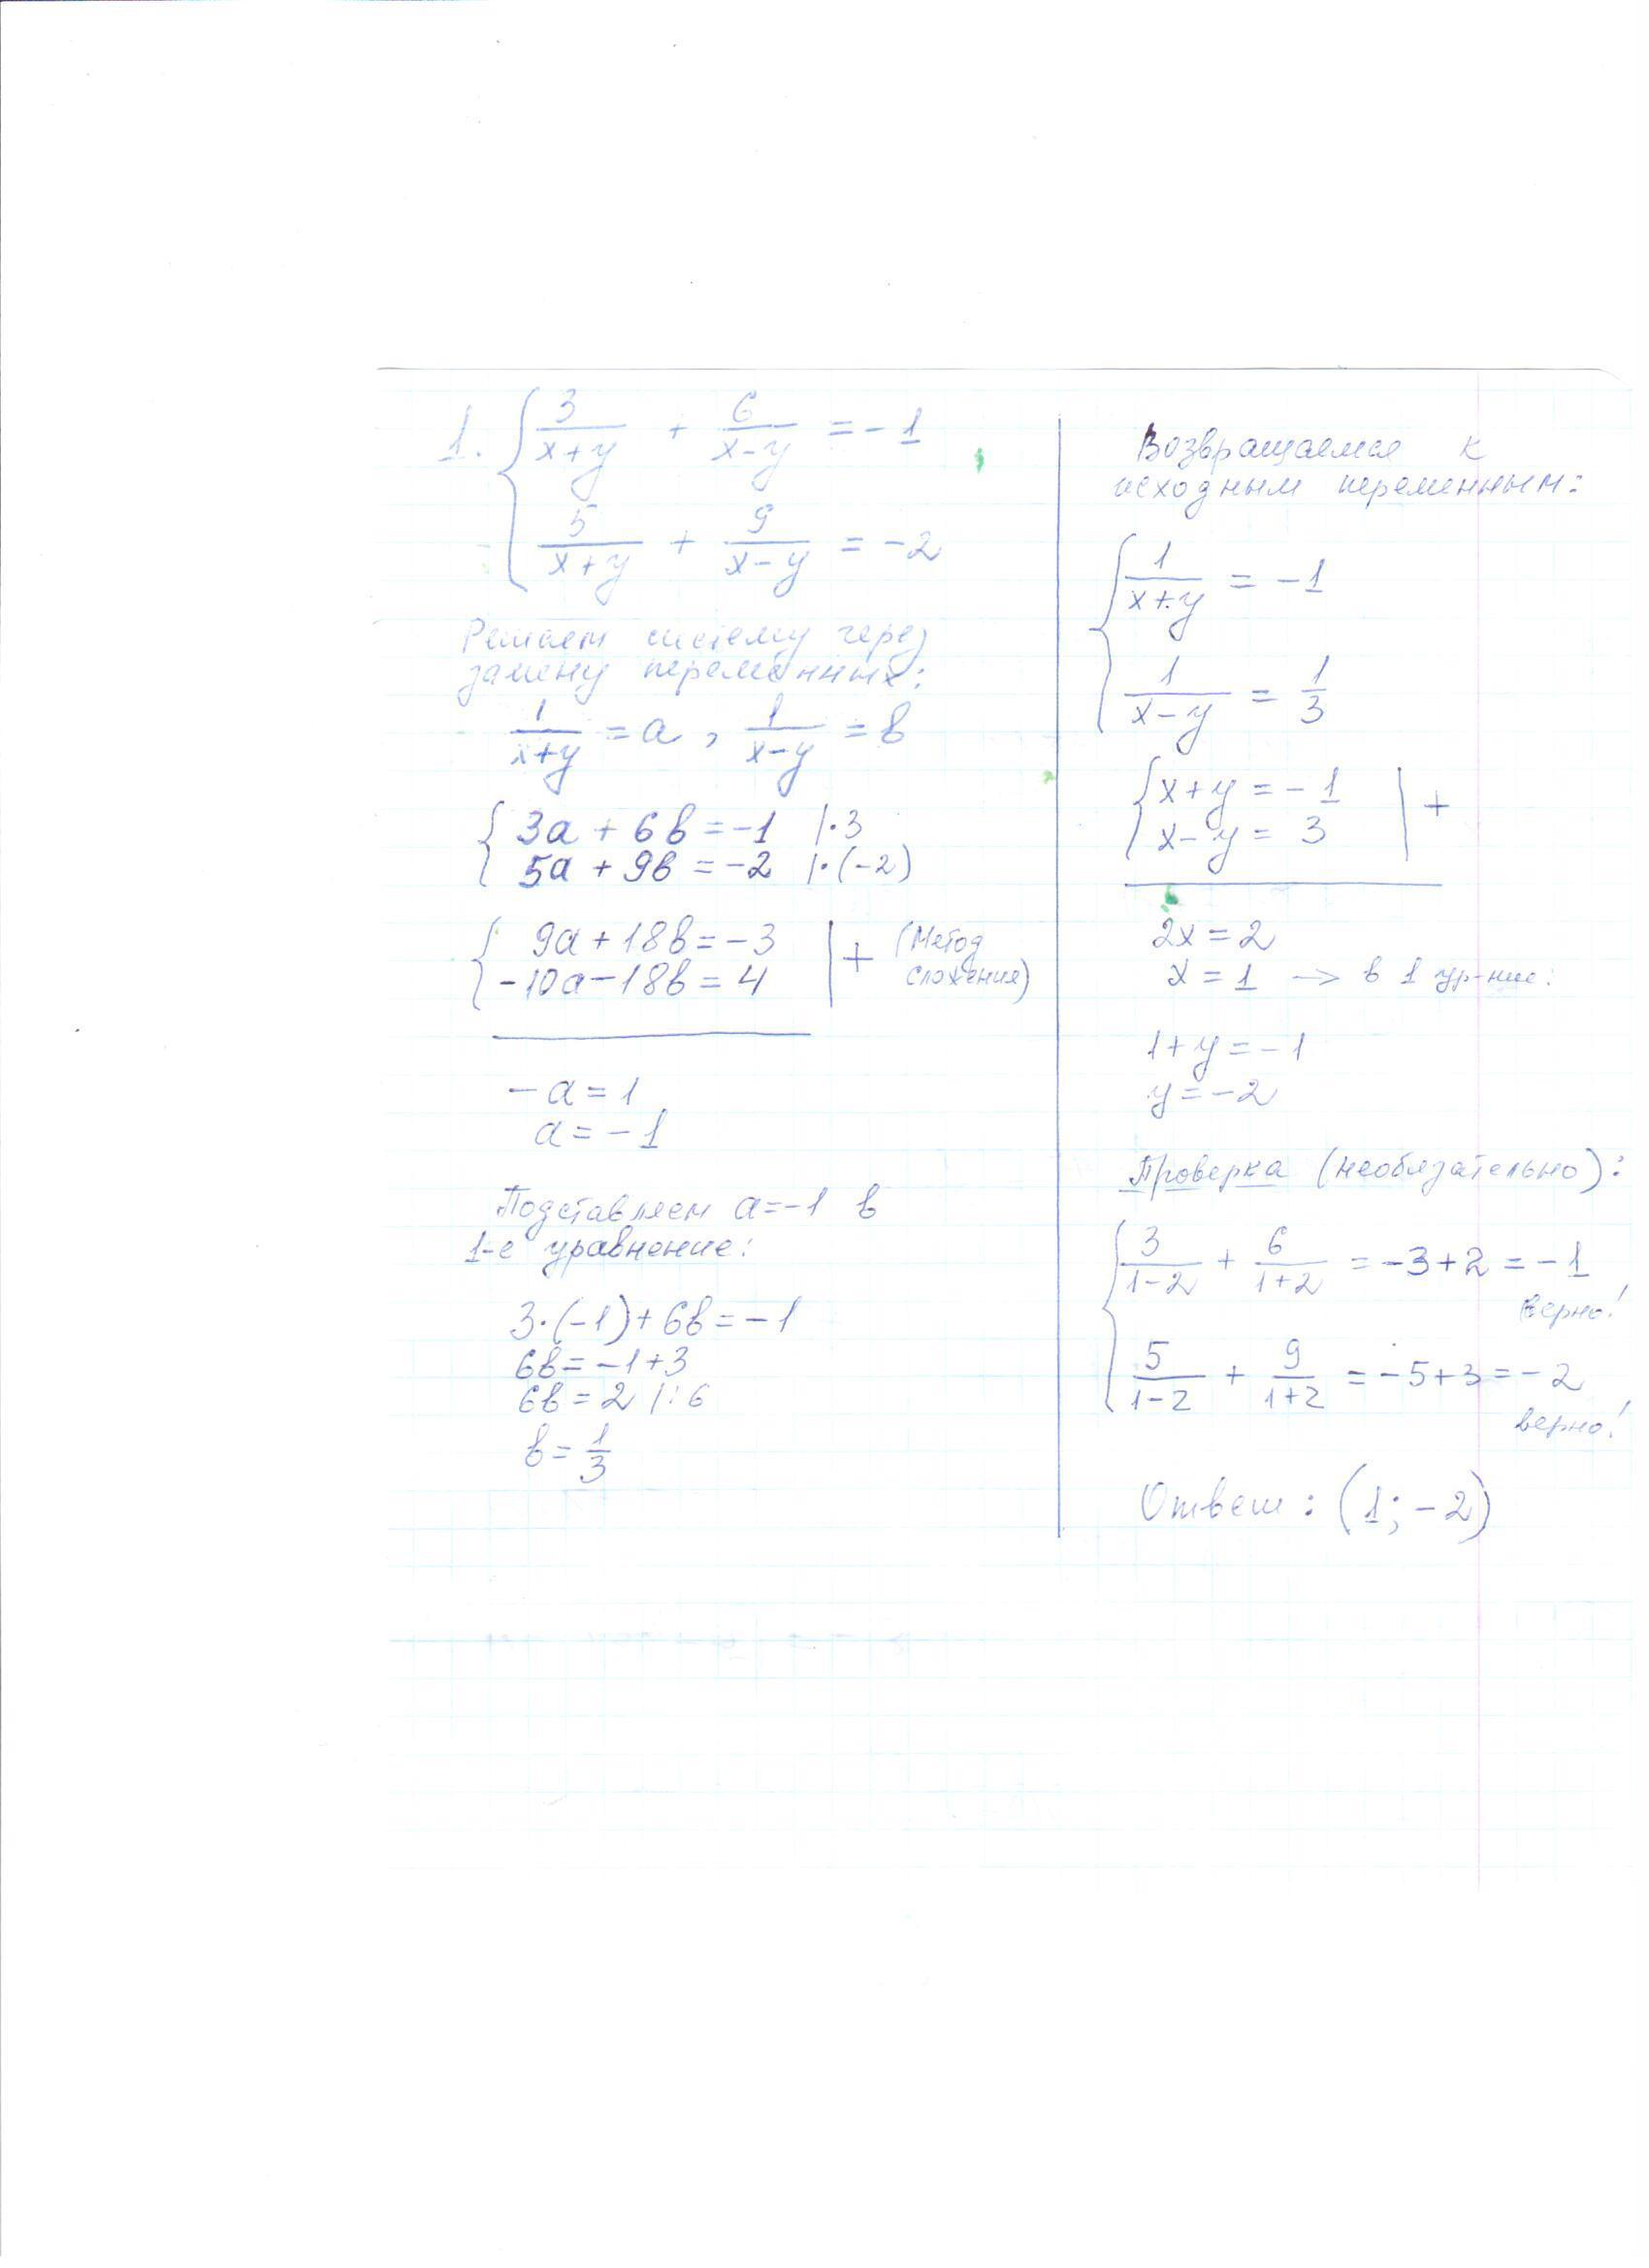 1. { 3/(x+y) + 6/(x-y) = -1
5/(x+y) + 9/(x-y) = -2
Решаем систему через
замену переменных:
1/(x+y) = a, 1/(x-y) = b
{ 3a + 6b = -1 |·3
5a + 9b = -2 |·(-2)
{ 9a + 18b = -3 | + (Метод
-10a - 18b = 4 сложения)
-a = 1
a = -1
Подставляем a=-1 в
1-е уравнение:
3·(-1) + 6b = -1
6b = -1 + 3
6b = 2 |:6
b = 1/3
Возвращаемся к
исходным переменным:
{ 1/(x+y) = -1
1/(x-y) = 1/3
{ x+y = -1 | +
x-y = 3
2x = 2
x = 1 → в 1 ур-ние:
1+y = -1
y = -2
Проверка (необязательно):
{ 3/(1-2) + 6/(1+2) = -3+2 = -1
верно!
5/(1-2) + 9/(1+2) = -5+3 = -2
верно!
Ответ: (1; -2)